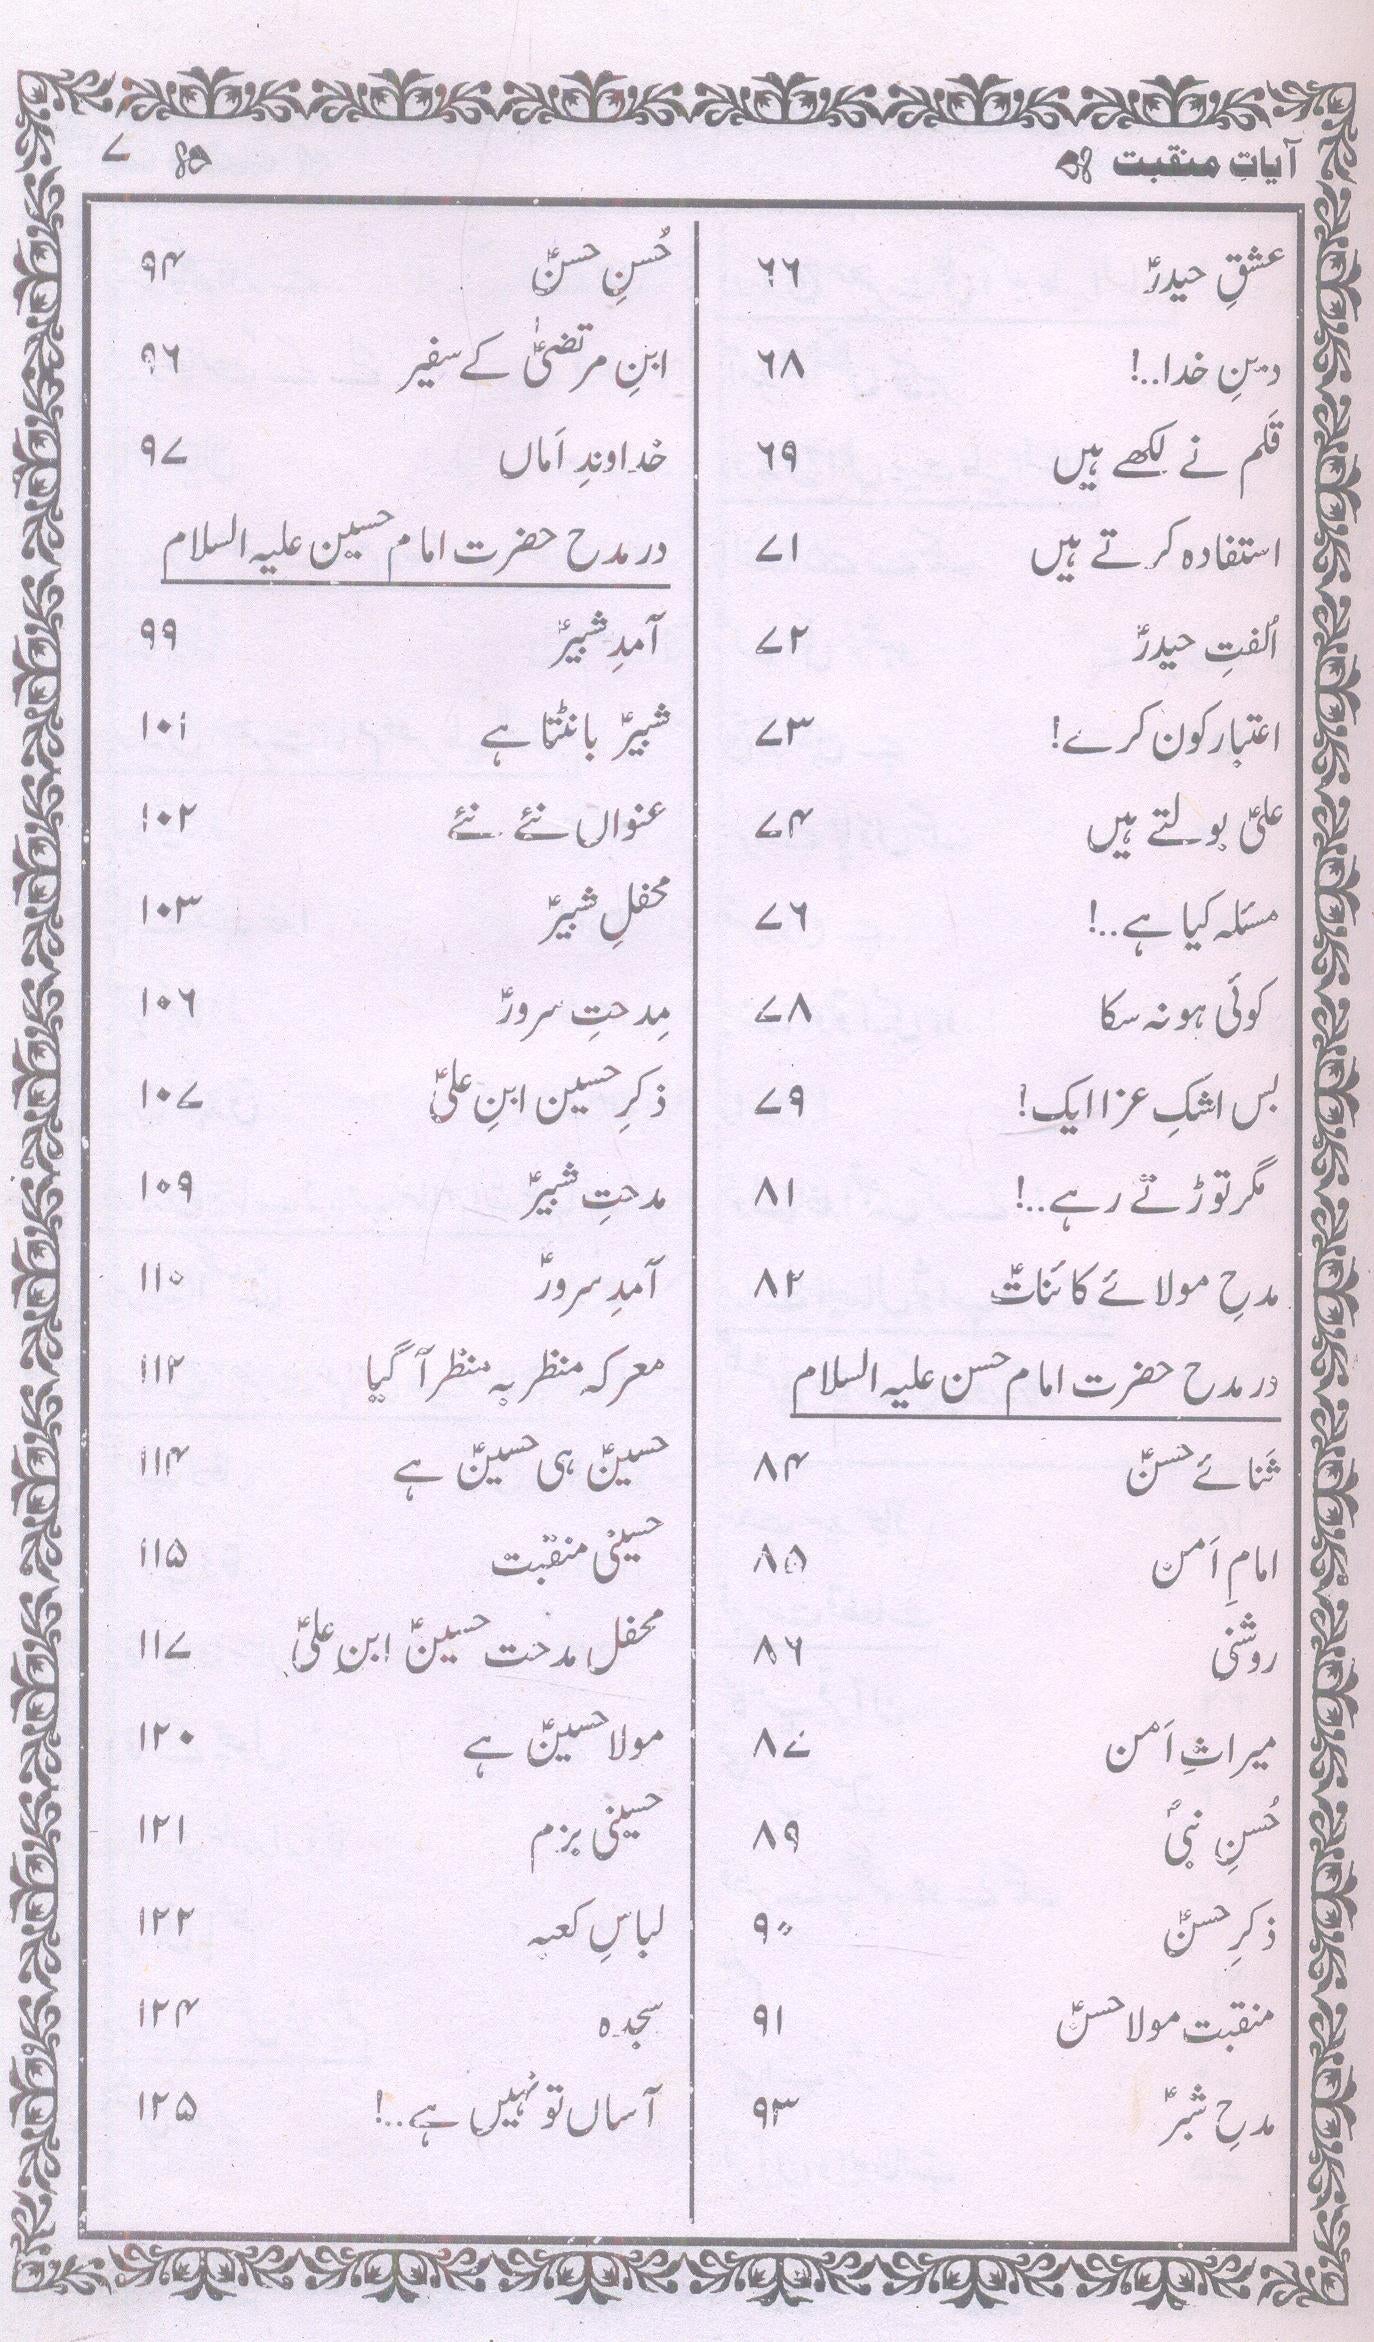 آیاتِ منقبت ۷
عشقِ حیدرؑ ۶۶
دینِ خدا..! ۶۸
قلم نے لکھے ہیں ۶۹
استفادہ کرتے ہیں ۷۱
اُلفتِ حیدرؑ ۷۲
اعتبار کون کرے! ۷۳
علیؑ بولتے ہیں ۷۴
مسئلہ کیا ہے..! ۷۶
کوئی ہو نہ سکا ۷۸
بس اشکِ عزا ایک! ۷۹
مگر توڑتے رہے..! ۸۱
مدحِ مولائے کائناتؑ ۸۲
در مدح حضرت امام حسن علیہ السلام
ثنائے حسنؑ ۸۴
امامِ اَمن ۸۵
روشنی ۸۶
میراثِ اَمن ۸۷
حُسنِ نبیؐ ۸۹
ذکرِ حسنؑ ۹۰
منقبت مولا حسنؑ ۹۱
مدحِ شبرؑ ۹۳
حُسنِ حسنؑ ۹۴
ابنِ مرتضیٰؑ کے سفیر ۹۶
خداوندِ اَماں ۹۷
در مدح حضرت امام حسین علیہ السلام
آمدِ شبیرؑ ۹۹
شبیرؑ بانٹتا ہے ۱۰۱
عنواں نئے نئے ۱۰۲
محفلِ شبیرؑ ۱۰۳
مِدحتِ سرورؑ ۱۰۶
ذکرِ حسین ابنِ علیؑ ۱۰۷
مدحتِ شبیرؑ ۱۰۹
آمدِ سرورؑ ۱۱۰
معرکہ منظر بہ منظر آ گیا ۱۱۲
حسینؑ ہی حسینؑ ہے ۱۱۴
حسینی منقبت ۱۱۵
محفل مدحت حسینؑ ابنِ علیؑ ۱۱۷
مولا حسینؑ ہے ۱۲۰
حسینی بزم ۱۲۱
لباسِ کعبہ ۱۲۲
سجدہ ۱۲۴
آساں تو نہیں ہے..! ۱۲۵